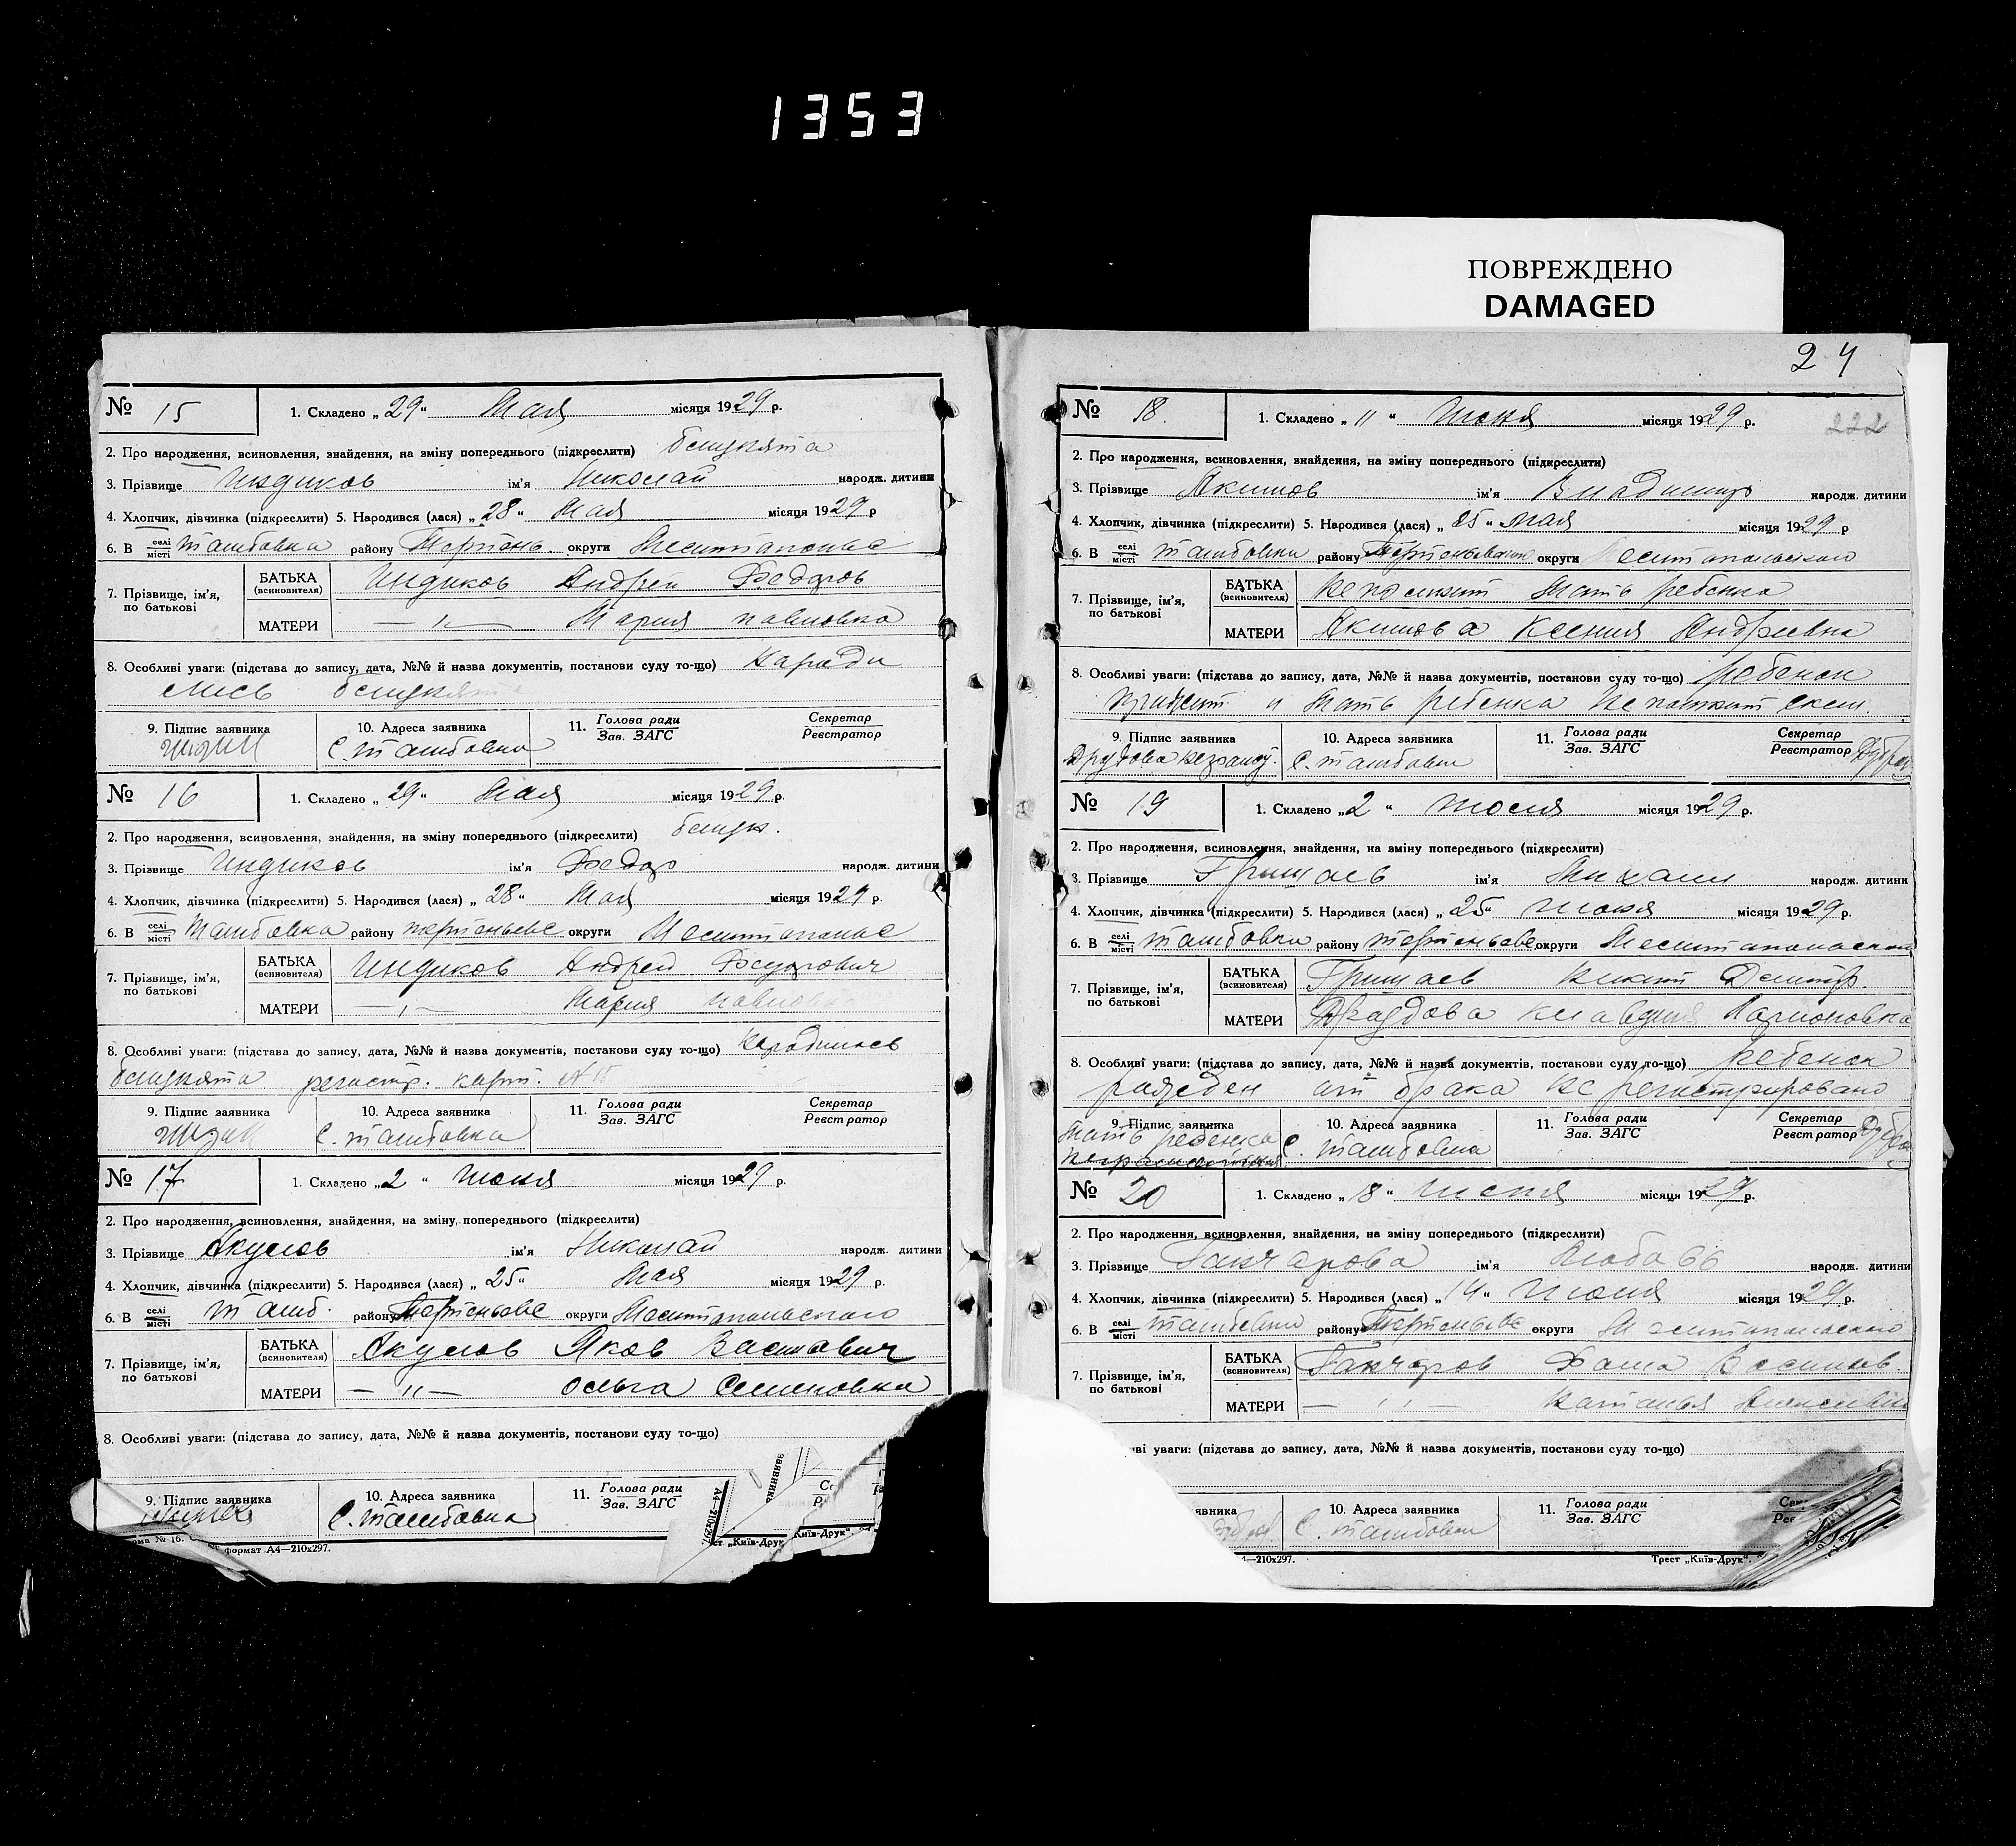 1353
ПОВРЕЖДЕНО
DAMAGED
№ 15 1. Складено „ 29 “ Мая місяця 1929 р.
2. Про народження, всиновлення, знайдення, на зміну попереднього (підкреслити) близнята
3. Прізвище Индиков ім'я Николай народж. дитини
4. Хлопчик, дівчинка (підкреслити) 5. Народився (лася) „ 28 “ Мая місяця 1929 р
6. В селі місті Тамбовка району Терпень округи
7. Прізвище, ім'я, по батькові БАТЬКА (всиновителя) Индиков Андрей Федоров
МАТЕРИ — „ — Мария павловна
8. Особливі уваги: (підстава до запису, дата, №№ й назва документів, постанови суду то-що) народи
лись близнята
9. Підпис заявника 10. Адреса заявника 11. Голова ради Зав. ЗАГС Секретар Реєстратор
С. Тамбовка
№ 16 1. Складено „ 29 “ Мая місяця 1929 р.
2. Про народження, всиновлення, знайдення, на зміну попереднього (підкреслити) близн.
3. Прізвище Индиков ім'я Федор народж. дитини
4. Хлопчик, дівчинка (підкреслити) 5. Народився (лася) „ 28 “ Мая місяця 1929 р.
6. В селі місті Тамбовка району округи
7. Прізвище, ім'я, по батькові БАТЬКА (всиновителя) Индиков Андрей Федорович
МАТЕРИ — „ — Мария павловна
8. Особливі уваги: (підстава до запису, дата, №№ й назва документів, постанови суду то-що) народились
близнята регистр. карт. № 15
9. Підпис заявника 10. Адреса заявника 11. Голова ради Зав. ЗАГС Секретар Реєстратор
С. Тамбовка
№ 17 1. Складено „ 2 “ Июня місяця 1929 р.
2. Про народження, всиновлення, знайдення, на зміну попереднього (підкреслити)
3. Прізвище Акулов ім'я Николай народж. дитини
4. Хлопчик, дівчинка (підкреслити) 5. Народився (лася) „ 25 “ Мая місяця 1929 р.
6. В селі місті Тамб. району округи Мелитопольского
7. Прізвище, ім'я, по батькові БАТЬКА (всиновителя) Акулов Яков Васильович
МАТЕРИ — „ — Ольга Семеновна
8. Особливі уваги: (підстава до запису, дата, №№ й назва документів, постанови суду то-що)
9. Підпис заявника 10. Адреса заявника 11. Голова ради Зав. ЗАГС
С. Тамбовка
формат А4—210х297. „Київ-Друк“
24
222
№ 18. 1. Складено „ 11 “ Июня місяця 1929 р.
2. Про народження, всиновлення, знайдення, на зміну попереднього (підкреслити)
3. Прізвище Акимов ім'я Владимир народж. дитини
4. Хлопчик, дівчинка (підкреслити) 5. Народився (лася) „ 25 “ мая місяця 1929 р
6. В селі місті Тамбовки району округи Мелитопольского
7. Прізвище, ім'я, по батькові БАТЬКА (всиновителя) мать ребенка
МАТЕРИ Акимова Ксения Андреевна
8. Особливі уваги: (підстава до запису, дата, №№ й назва документів, постанови суду то-що) ребенок
и мать ребенка не
9. Підпис заявника 10. Адреса заявника 11. Голова ради Зав. ЗАГС Секретар Реєстратор
С. Тамбовки
№ 19 1. Складено „ 2 “ Июля місяця 1929 р.
2. Про народження, всиновлення, знайдення, на зміну попереднього (підкреслити)
3. Прізвище Гришаев ім'я Михаил народж. дитини
4. Хлопчик, дівчинка (підкреслити) 5. Народився (лася) „ 25 “ Июня місяця 1929 р.
6. В селі місті Тамбовки району округи Мелитопольского
7. Прізвище, ім'я, по батькові БАТЬКА (всиновителя) Гришаев Никит Дмитр.
МАТЕРИ Клавдия Ларионовна
8. Особливі уваги: (підстава до запису, дата, №№ й назва документів, постанови суду то-що) ребенок
рожден от брака не регистрировано
9. Підпис заявника 10. Адреса заявника 11. Голова ради Зав. ЗАГС Секретар Реєстратор
Мать ребенка
С. Тамбовка
№ 20 1. Складено „ 18 “ Июня місяця 1929 р.
2. Про народження, всиновлення, знайдення, на зміну попереднього (підкреслити)
3. Прізвище Ганчарова ім'я Любовь народж. дитини
4. Хлопчик, дівчинка (підкреслити) 5. Народився (лася) „ 14 “ Июня місяця 1929 р.
6. В селі місті Тамбовки району округи Мелитопольского
7. Прізвище, ім'я, по батькові БАТЬКА (всиновителя) Ганчаров Фома Васильев.
МАТЕРИ — „ — Наталья
ві уваги: (підстава до запису, дата, №№ й назва документів, постанови суду то-що)
явника 10. Адреса заявника 11. Голова ради Зав. ЗАГС
С. Тамбовки
4—210х297. Трест „Київ-Друк“.